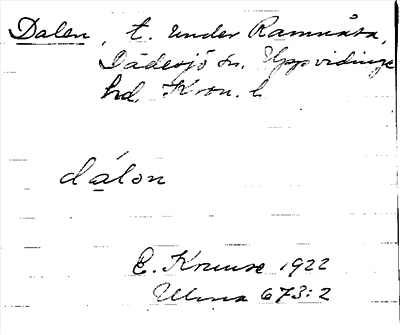 Dalen, t. under Ramnåsa,
Dädesjö sn. Uppvidinge
hd. Kron. l.
dálon
E. Kruuse 1922
Ulma 673:2